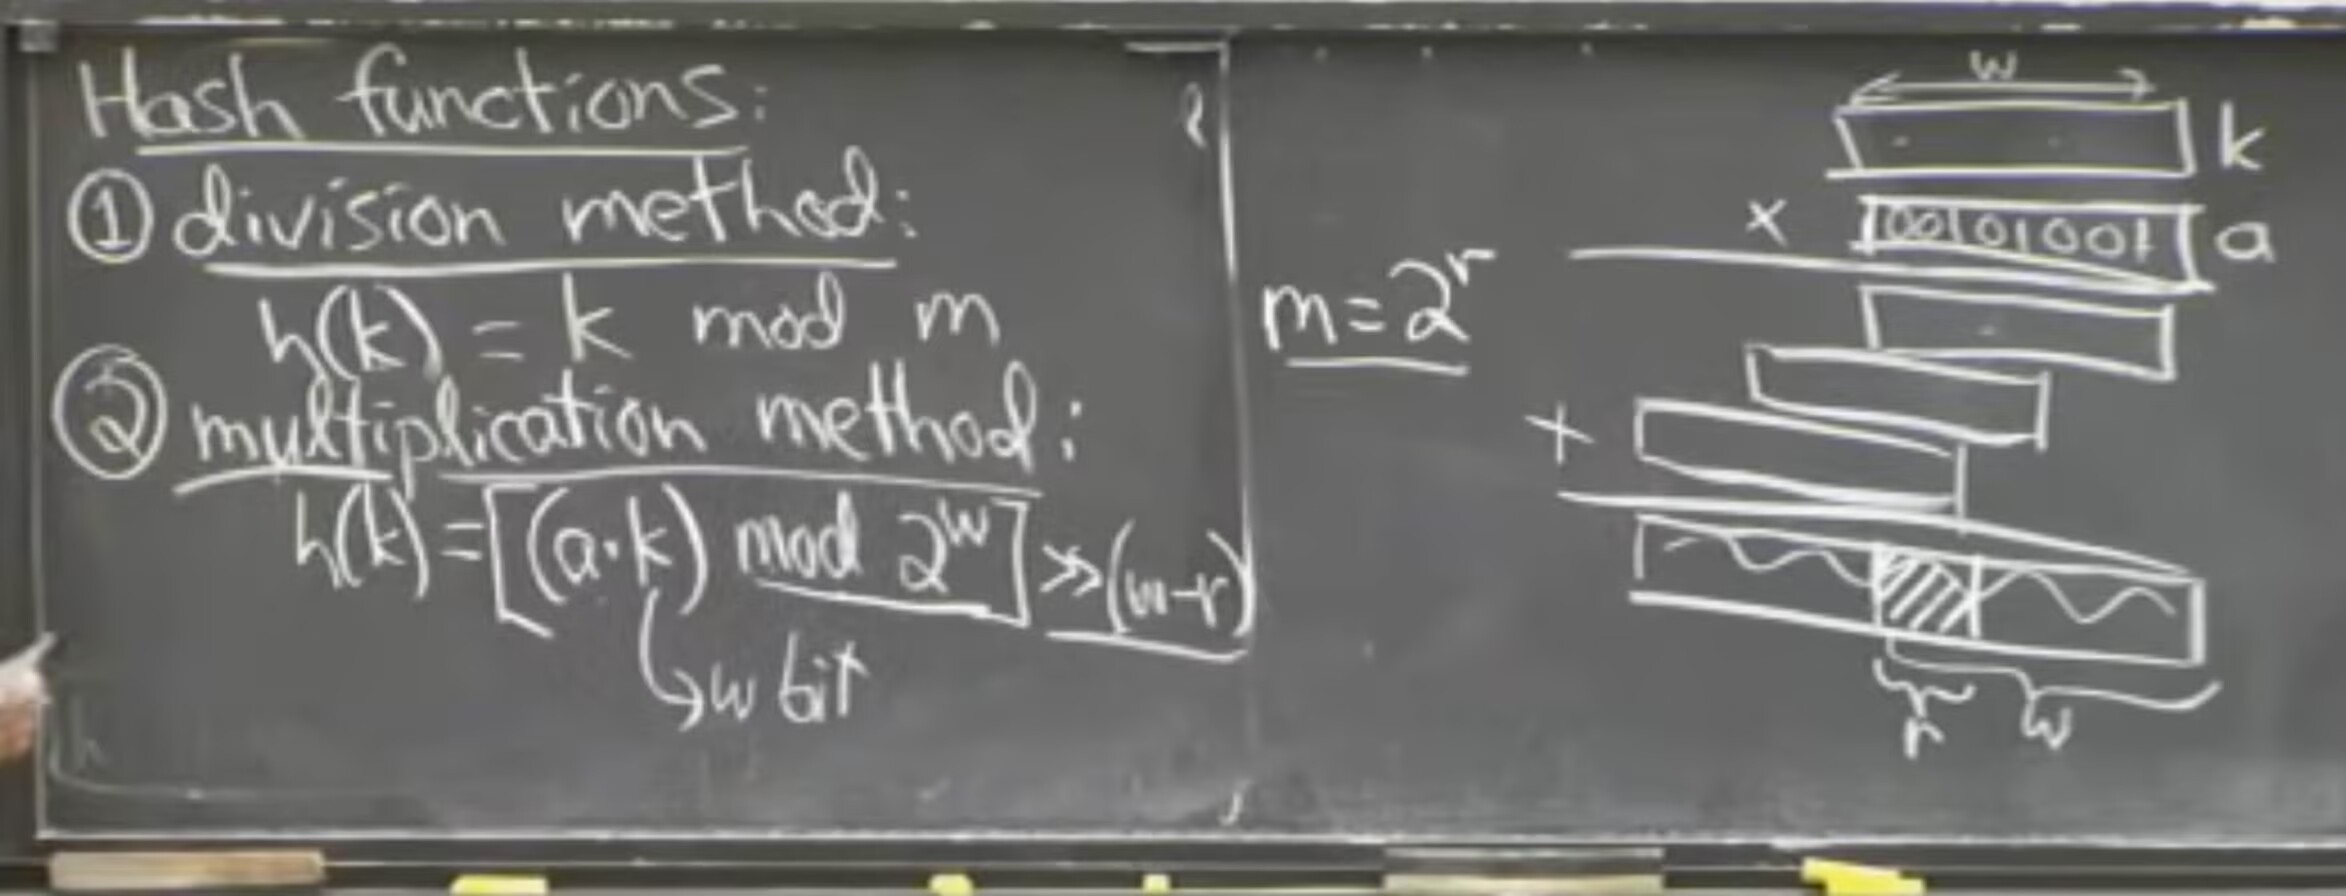 Hash functions:
① division method:
h(k) = k mod m
② multiplication method:
h(k) = [(a·k) mod 2^w] >> (w-r)
↳ w bit
m = 2^r
w
k
x
00101001 a
+
r
w